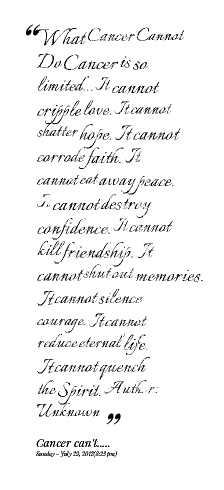 “What Cancer Cannot
Do Cancer is so
limited... It cannot
cripple love. It cannot
shatter hope. It cannot
corrode faith. It
cannot eat away peace.
It cannot destroy
confidence. It cannot
kill friendship. It
cannot shut out memories.
It cannot silence
courage. It cannot
reduce eternal life.
It cannot quench
the Spirit. Auth r:
Unknown ”
Cancer can't.....
Sunday – July 29, 2012